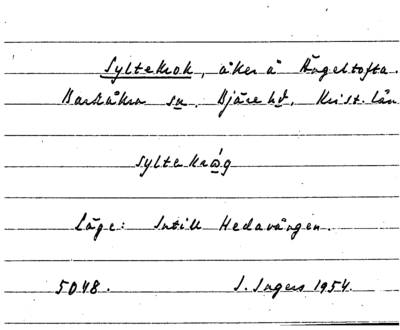 Syltekrok, åker å Ängeltofta.
Barkåkra sn. Bjäre hd. Krist. län
syltekråg
Läge: Intill Hedavången.
5048. I. Ingers 1954.